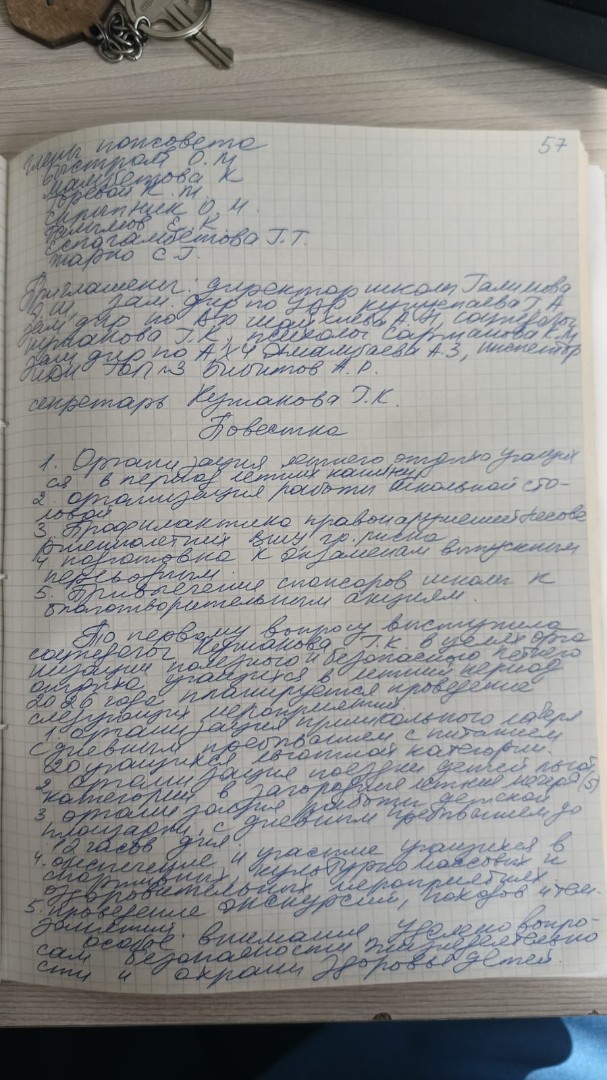 57
члены попсовета
Быстрай О.М
Мамбетова К
Горевой К.М.
Скрыпник О.Н.
Галымов Е.К.
Еспагамбетова Г.Т.
Тарно С.Г.
Приглашены: директор школы Галимова
зам. дир по УВР Кушупаева Г.А
зам дир по ВР А.Н, соцпедагог
Кужанова Г.К, психолог Сарманова К.М
зам дир по АХЧ Джамбаева А.З, инспектор
ЮП ГОП №3 Бибитов А.Р.
секретарь Кужанова Г.К.
Повестка
1. Организация летнего отдыха учащих
ся в период летних каникул
2. организация работы школьной сто-
ловой
3. Профилактика правонарушений несове
ршеннолетних гр. риска
4 подготовка к экзаменам выпускным
переводным.
5. Привлечение спонсоров школы к
благотворительным акциям.
По первому вопросу выступила
соцпедагог Кужанова Г.К. в целях орга
низации полезного и безопасного летнего
отдыха учащихся в летний период
2026 года планируется проведение
следующих мероприятий
1. организация пришкольного лагеря
с дневным пребыванием с питанием
20 учащихся льготной категории.
2. организация поездки детей льгот
категории в загородные летние лагеря (5)
3. организация работы детской
площадки, с дневным пребыванием до
12 часов дня
4. обеспечение и участие учащихся в
спортивных, культурно массовых и
оздоровительных мероприятиях.
5. проведение экскурсий, походов и
занятий
особое внимание уделено вопро-
сам безопасности жизнедеятельно
сти и охраны здоровья детей.